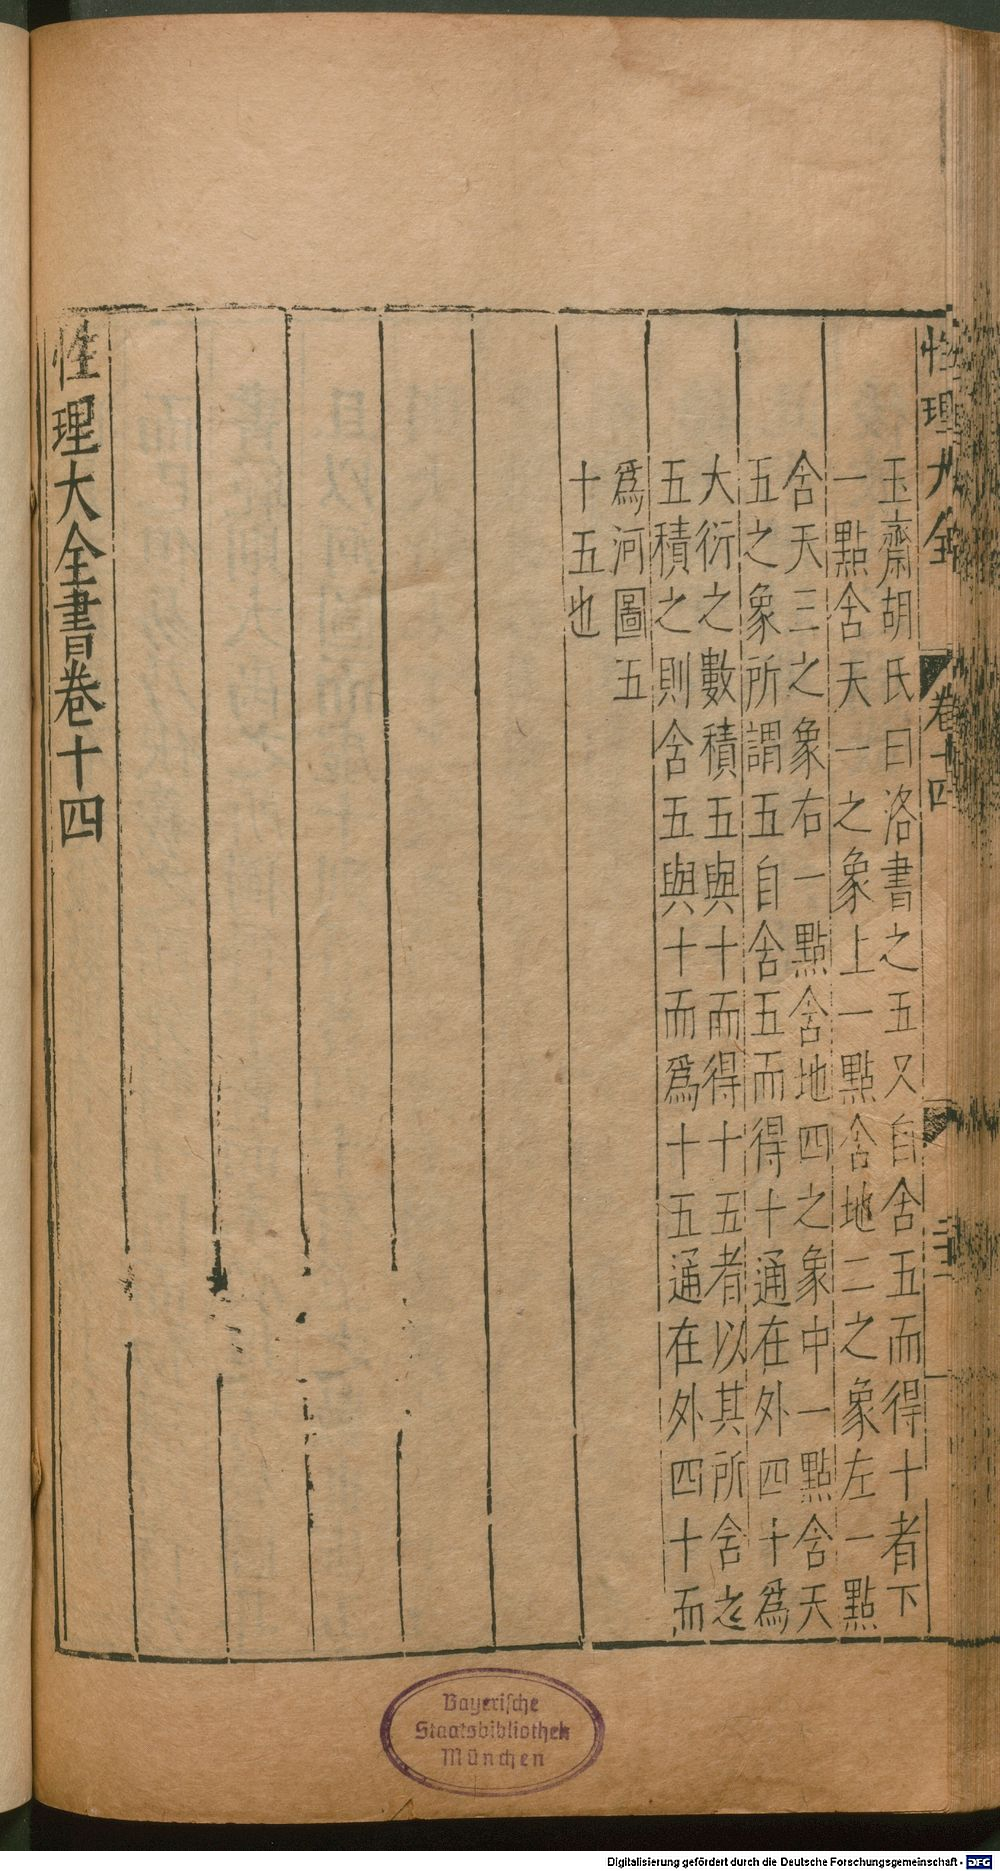 性理大全 卷十四
玉齋胡氏曰洛書之五又自含五而得十者下
一點含天一之象上一點含地二之象左一點
含天三之象右一點含地四之象中一點含天
五之象所謂五自含五而得十通在外四十爲
大衍之數積五與十而得十五者以其所含之
五積之則含五與十而爲十五通在外四十而
爲河圖五
十五也
性理大全書卷十四
Bayerische
Staatsbibliothek
München
Digitalisierung gefördert durch die Deutsche Forschungsgemeinschaft - DFG